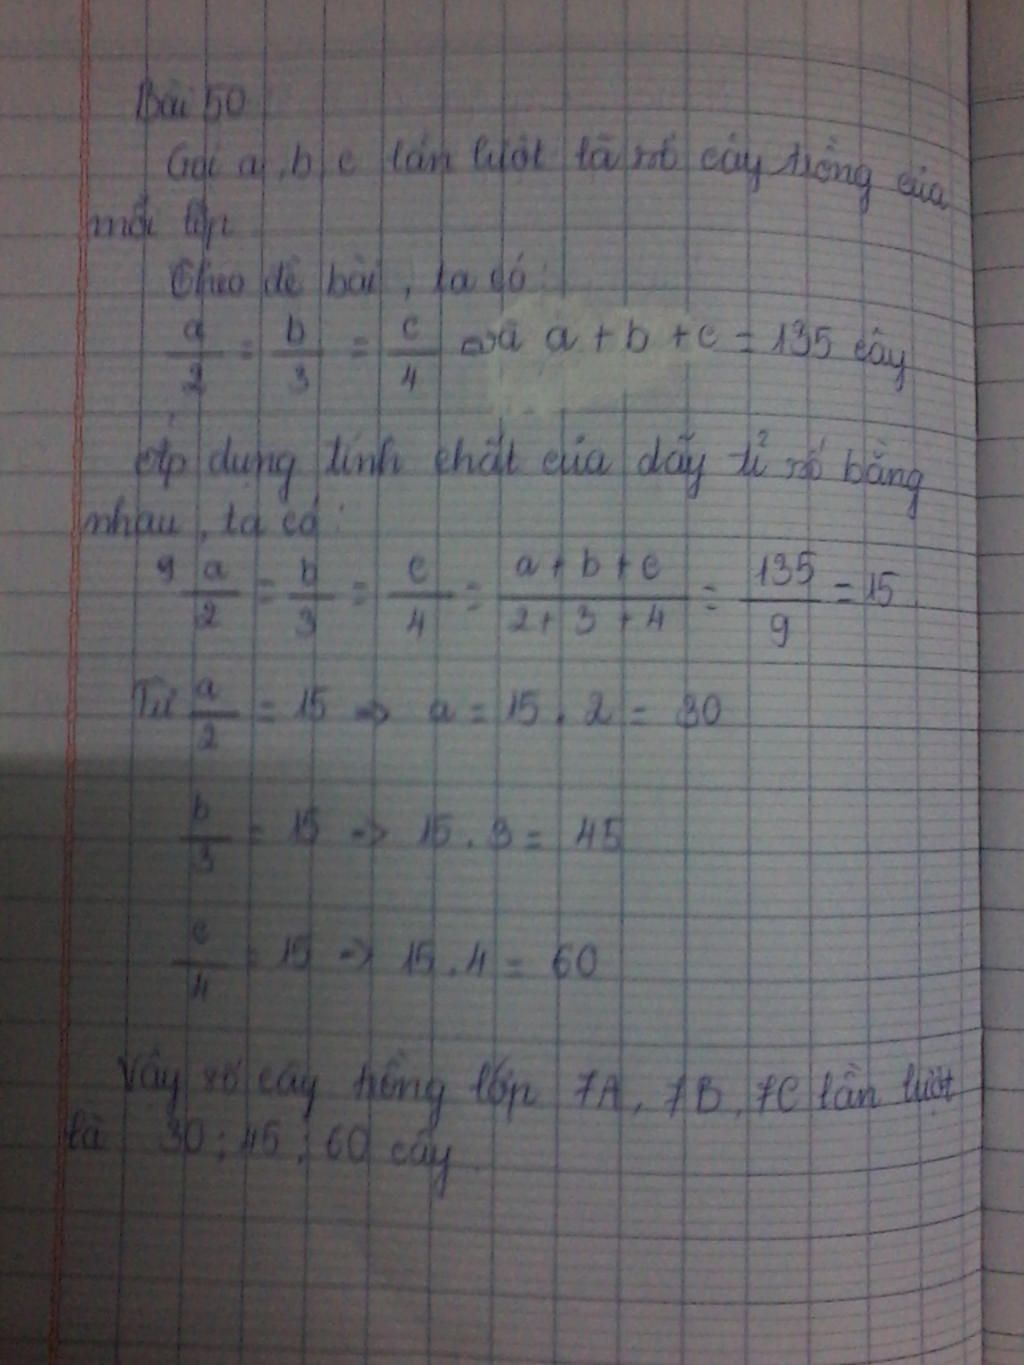 Bài 50
Gọi a, b c lần lượt là số cây trồng của
mỗi lớp
Theo đề bài, ta có:
a/2 = b/3 = c/4 và a + b + c = 135 cây
Áp dụng tính chất của dãy tỉ số bằng
nhau, ta có:
a/2 = b/3 = c/4 = a + b + c/2 + 3 + 4 = 135/9 = 15
Từ a/2 = 15 => a = 15 . 2 = 30
b/3 = 15 => 15 . 3 = 45
c/4 = 15 => 15 . 4 = 60
Vậy số cây trồng lớp 7A, 7B, 7C lần lượt
là 30 ; 45 ; 60 cây.